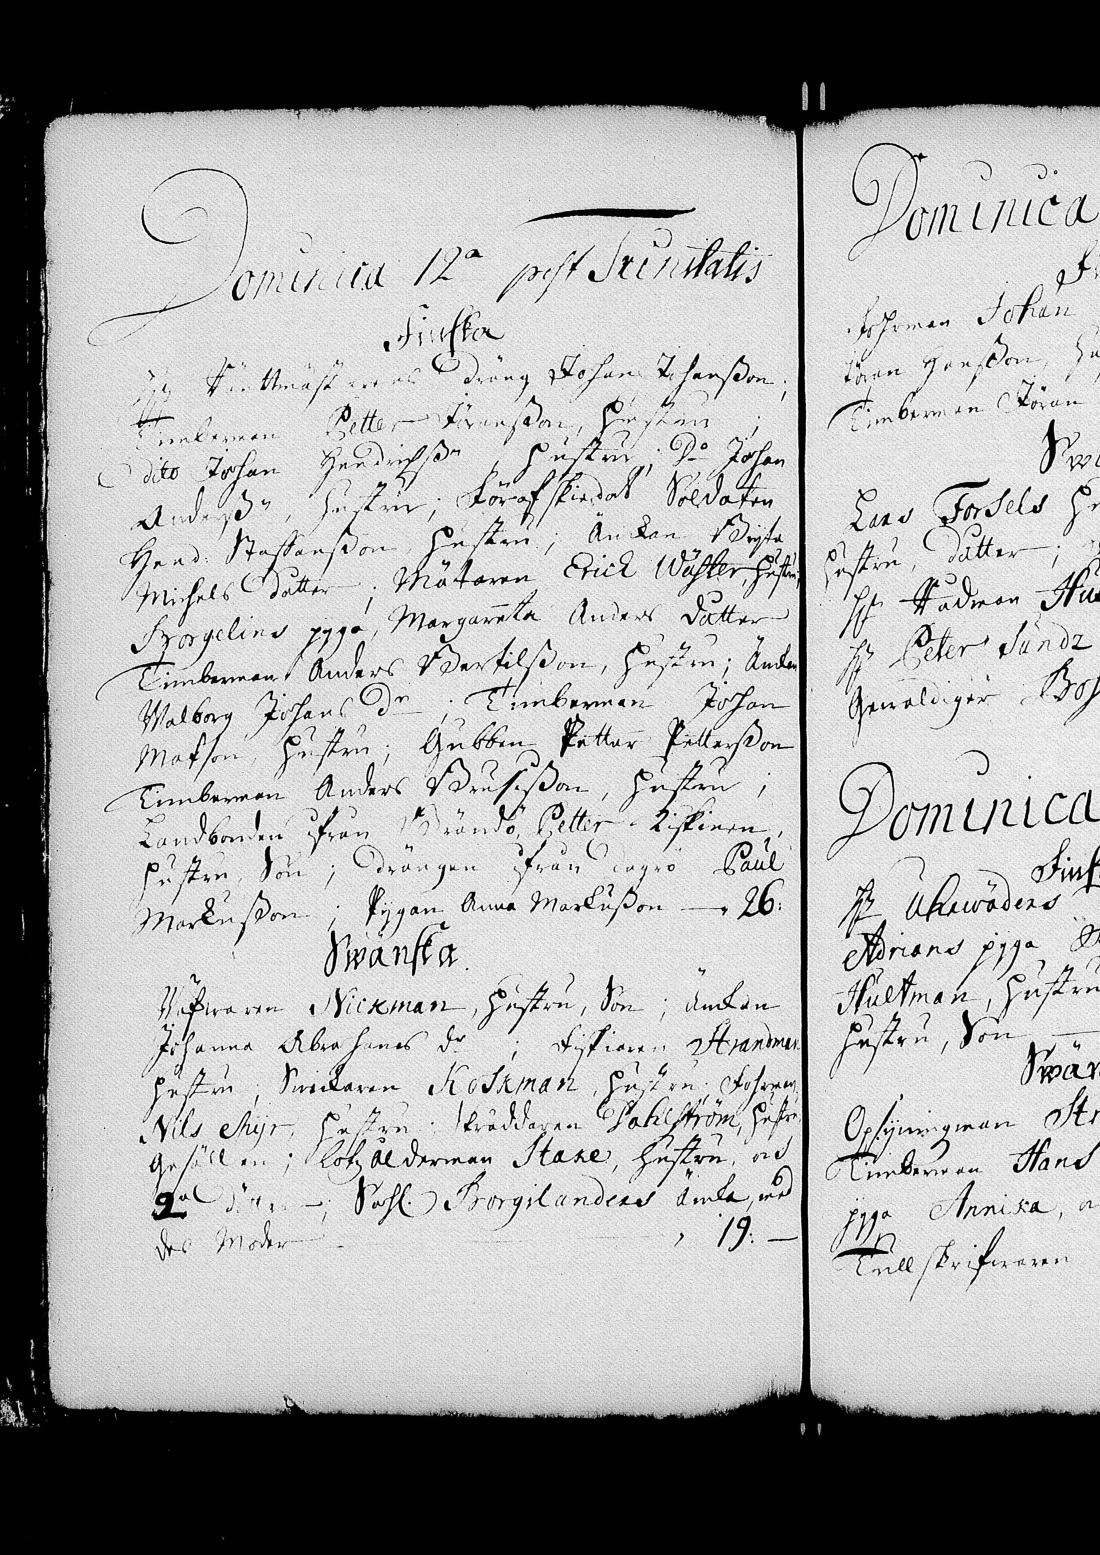 Dominica 12a post Trinitatis
Finska
Hr Rättmästerens dräng Johan Johansßon;
Timberman Petter Jöransßon, hustru;
dito Johan Hendrichsßn, hustru; Do Johan
Andersßn, hustru; förafskiedat Soldaten
Hend: Staffansßon, hustru; Änkan Brijta
Michels dotter; Mätaren Erich Wähler, hustru,
Borgelins pyga, Margareta Anders dotter
Timberman Anders Bertilsßon, hustru; Änkan
Walborg Johans dr; Timberman Johan
Matson, hustru; Gubben Petter Pettersßon
Timberman Anders Brusisßon, hustru;
Landbonden ifrån Brändö, Petter Kiskinen,
hustru, Son; drängen ifrån degrö Paul
Markusßon; Pygan Anna Markusßon — 26:
Swänska.
Wäfwaren Nickman, hustru, Son; Änkan
Johanna Abrahams dr; fiskiaren Strandman
hustru; Swickaren Koskman, hustru; Fohrman
Nils Myr, hustru; skräddaren Dahlström, hustru
Gesällen; Lotz ålderman Stake, hustru, och
2a döttrar; Sahl. Borgilanders Änka, med
des Moder — 19: —
Dominica
Fohrman Johan
Jöran Hansßon, hu
Timberman Jöran
Swä
Lars Forsels hu
hustru, dotter;
Hr Rådman Hu
Hr Peter Sundz
Gewaldiger Boh
Dominica
Finsk
Hr Uhrwäders
Adrians pyga
Hultman, hustru
hustru, Son —
Swän
Opsyningman Str
Timberman Hans
pyga Annika,
Tullskrifwaren